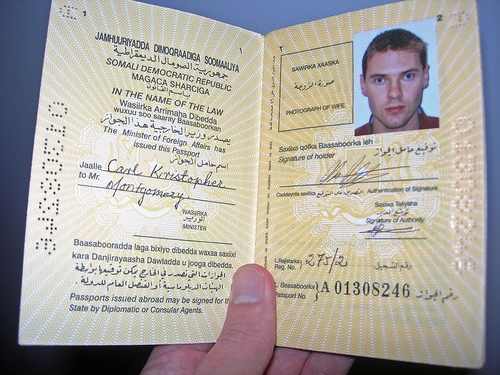 1
JAMHUURIYADDA DIMOQRAADIGA SOOMAALIYA
جمهورية الصومال الديمقراطية
SOMALI DEMOCRATIC REPUBLIC
MAGACA SHARCIGA
باسم القانون
IN THE NAME OF THE LAW
Wasiirka Arrimaha Dibedda
wuxuu soo saaray Baasaboorkan
وزير الخارجية هذا الجواز
The Minister of Foreign Affairs has
issued this Passport
اسم حامل الجواز
Jaalle
to Mr. Carl Kristopher
Montgomery
WASIIRKA
الوزير
MINISTER
Baasabooradda laga bixiyo dibedda waxaa saxiixi
kara Danjirayaasha Dawladda u jooga dibedda.
الجوازات التي تصدر في الخارج يمكن توقيعها بواسطة
الهيئات الدبلوماسية أو القنصل العام للدولة.
Passports issued abroad may be signed for the
State by Diplomatic or Consular Agents.
2
2
SAWIRKA XAASKA
صورة الزوجة
PHOTOGRAPH OF WIFE
Saxiixa qofka Baasaboorka leh
توقيع حامل الجواز
Signature of holder
Caddeynta saxiixa
Authentication of Signature
Saxiixa Taliyaha
Signature of Authority
L.Rejistarka
Reg. No. 275/2
رقم التسجيل
L. Baasaboorka
Passport No. A 01308246
رقم الجواز